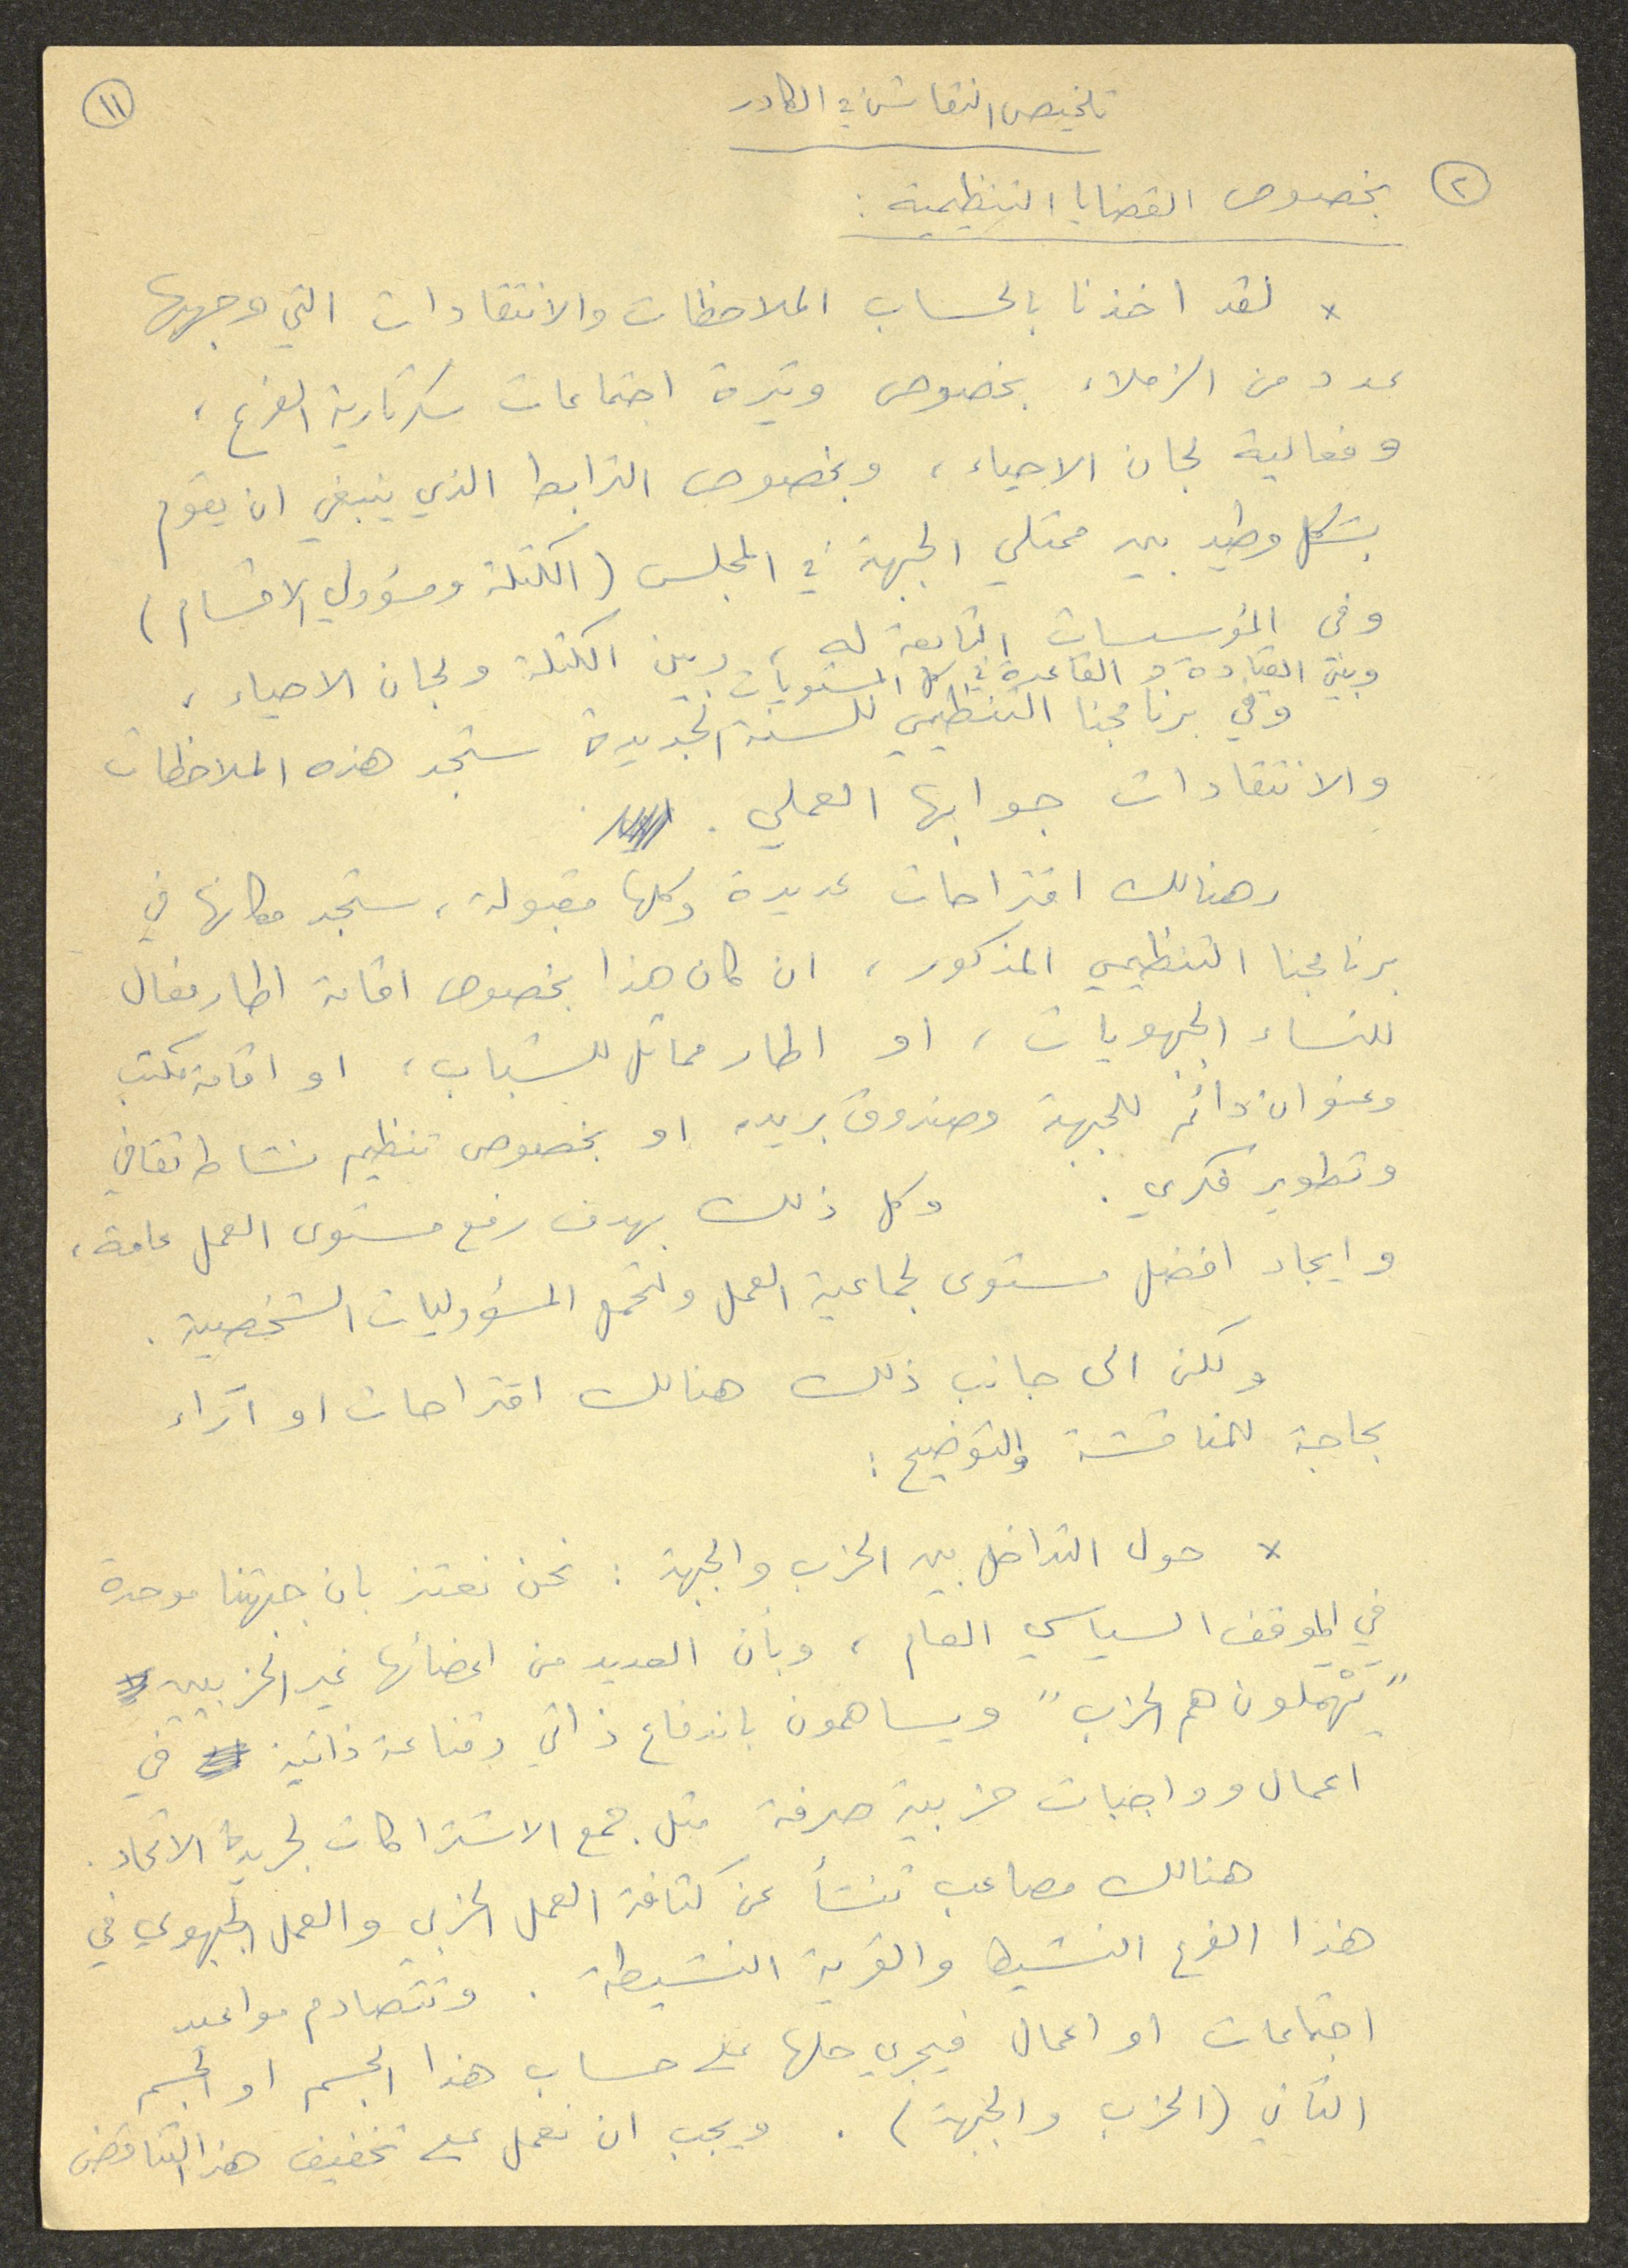 ١١
تلخيص النقاش في الكادر
٢ بخصوص القضايا التنظيمية :
* لقد اخذنا بالحساب الملاحظات والانتقادات التي وجهها
عدد من الزملاء بخصوص وتيرة اجتماعات سكرتارية الفرع ،
وفعالية لجان الاحياء ، وبخصوص الترابط الذي ينبغي ان يقوم
بشكل وطيد بين ممثلي الجبهة في المجلس ( الكتلة ومسؤولي الاقسام )
وفي المؤسسات التابعة له ، وبين الكتلة ولجان الاحياء ،
وبين القيادة والقاعدة في كل المستويات
وفي برنامجنا التنظيمي للسنة الجديدة ستجد هذه الملاحظات
والانتقادات جوابها العملي .
وهنالك اقتراحات عديدة وكلها مقبولة ، ستجد مكانها في
برنامجنا التنظيمي المذكور ، ان كان هذا بخصوص اقامة اطار فعال
للنساء الجبهويات ، او اطار مماثل للشباب ، او اقامة مكتب
وعنوان دائم للجبهة وصندوق بريد، او بخصوص تنظيم نشاط ثقافي
وتطوير فكري . وكل ذلك بهدف رفع مستوى العمل عامة ،
وايجاد افضل مستوى لجماعية العمل ولتحمل المسؤوليات الشخصية .
ولكن الى جانب ذلك هنالك اقتراحات او آراء
بحاجة للمناقشة والتوضيح :
* حول التداخل بين الحزب والجبهة : نحن نعتز بان جبهتنا موحدة
في الموقف السياسي العام ، وبأن العديد من اعضائها غير الحزبيين
" يَحْملون هم الحزب " ويساهمون باندفاع ذاتي وقناعة ذاتية في
اعمال وواجبات حزبية صرفة مثل جمع الاشتراكات لجريدة الاتحاد .
هنالك مصاعب تنشأ عن كثافة العمل الحزبي والعمل الجبهوي في
هذا الفرع النشيط والقرية النشيطة . وتتصادم مواعيد
اجتماعات او اعمال فيجري حلها على حساب هذا الجسم او الجسم
الثاني ( الحزب والجبهة ) . ويجب ان نعمل على تخفيف هذا التناقض